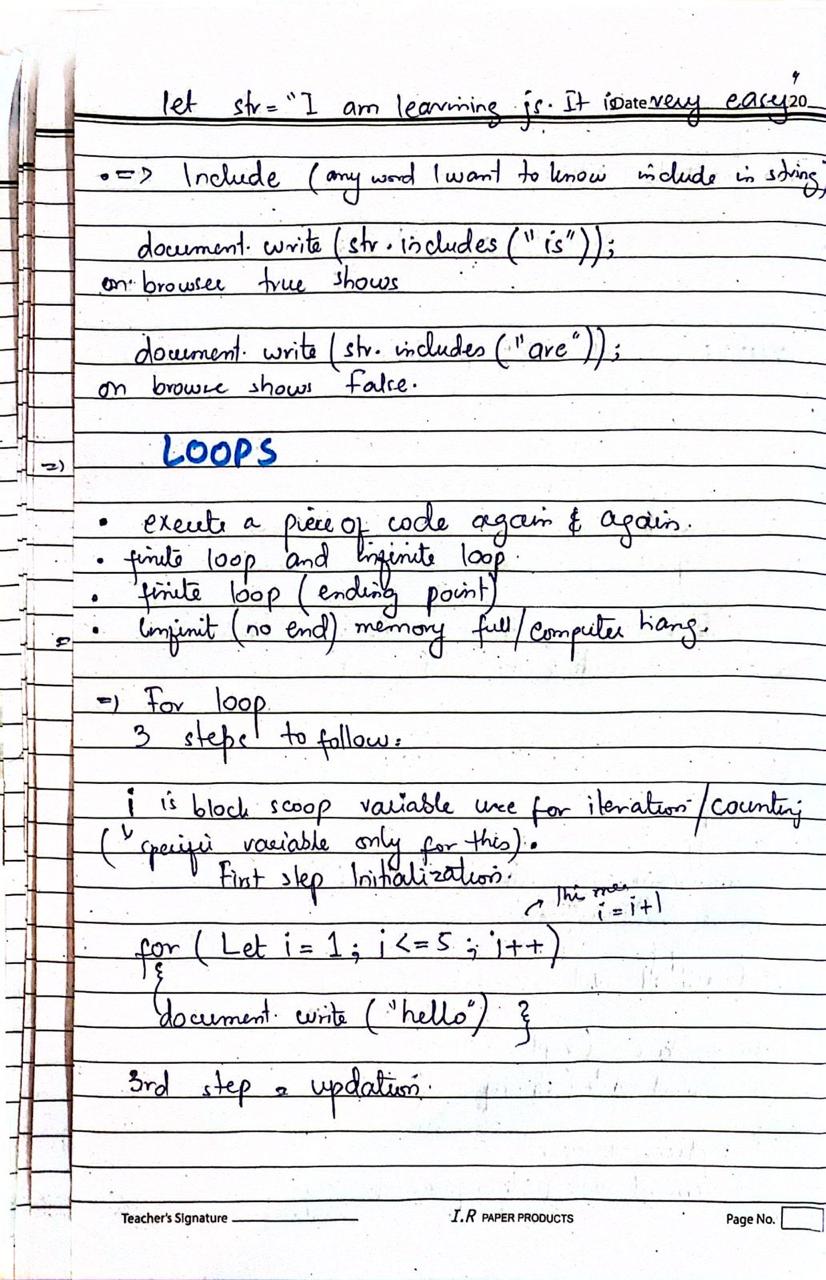 let str = "I am learning js. It is Date very easy" 20
•=> Include (any word I want to know include in string)
document. write (str. includes ("is"));
on browser true shows
document. write (str. includes ("are"));
on browse shows false.
LOOPS
=)
• execute a piece of code again & again.
• finite loop and Infinite loop.
• finite loop (ending point)
• Iinfinit (no end) memory full/computer hang.
=) For loop
3 steps to follow:
i is block scoop variable use for iteration/counting
(↳ specific variable only for this).
First step Initialization.
↗ This
i = i+1
for ( Let i = 1; i <= 5 ; i++)
{
document. write ("hello") }
3rd step = updation.
Teacher's Signature
I.R PAPER PRODUCTS
Page No.